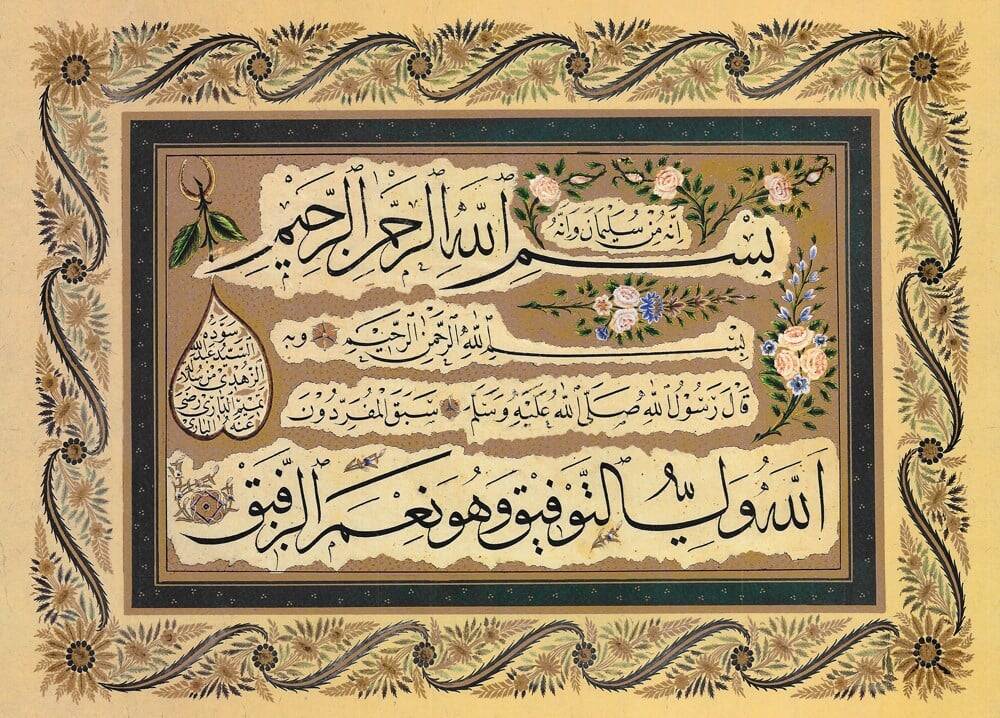 اِنَّهُ مِنْ سُلَيْمَانَ وَاِنَّهُ
بِسْمِ اللهِ الرَّحْمٰنِ الرَّحِيمِ
بِسْمِ اللهِ الرَّحْمٰنِ الرَّحِيمِ وبه
قَالَ رَسُولُ اللهِ صَلَّى اللهُ عَلَيْهِ وَسَلَّمَ سَبَقَ الْمُفَرِّدُونَ
اَللهُ وَلِيُّ التَّوْفِيقِ وَهُوَ نِعْمَ الرَّفِيقُ
سوّده
السيد عبدالله
الزهدي من سلالة
تميم الداري رضي
عنه الباري